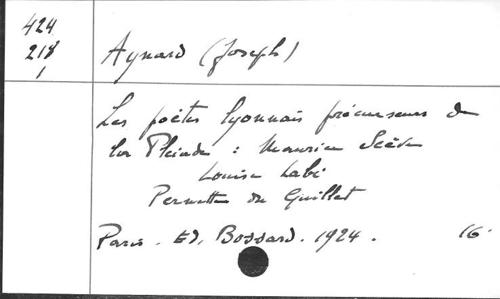 424
218
1
Aynard (Joseph)
Les poètes lyonnais précurseurs de
la Pleiade : Maurice Scève
Louise Labé
Pernette du Guillet
Paris. Ed. Bossard. 1924. 16°